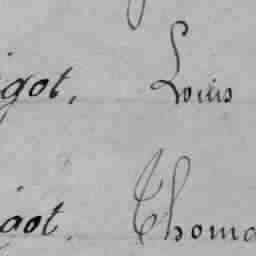 igot, Louis
igot, Thoma